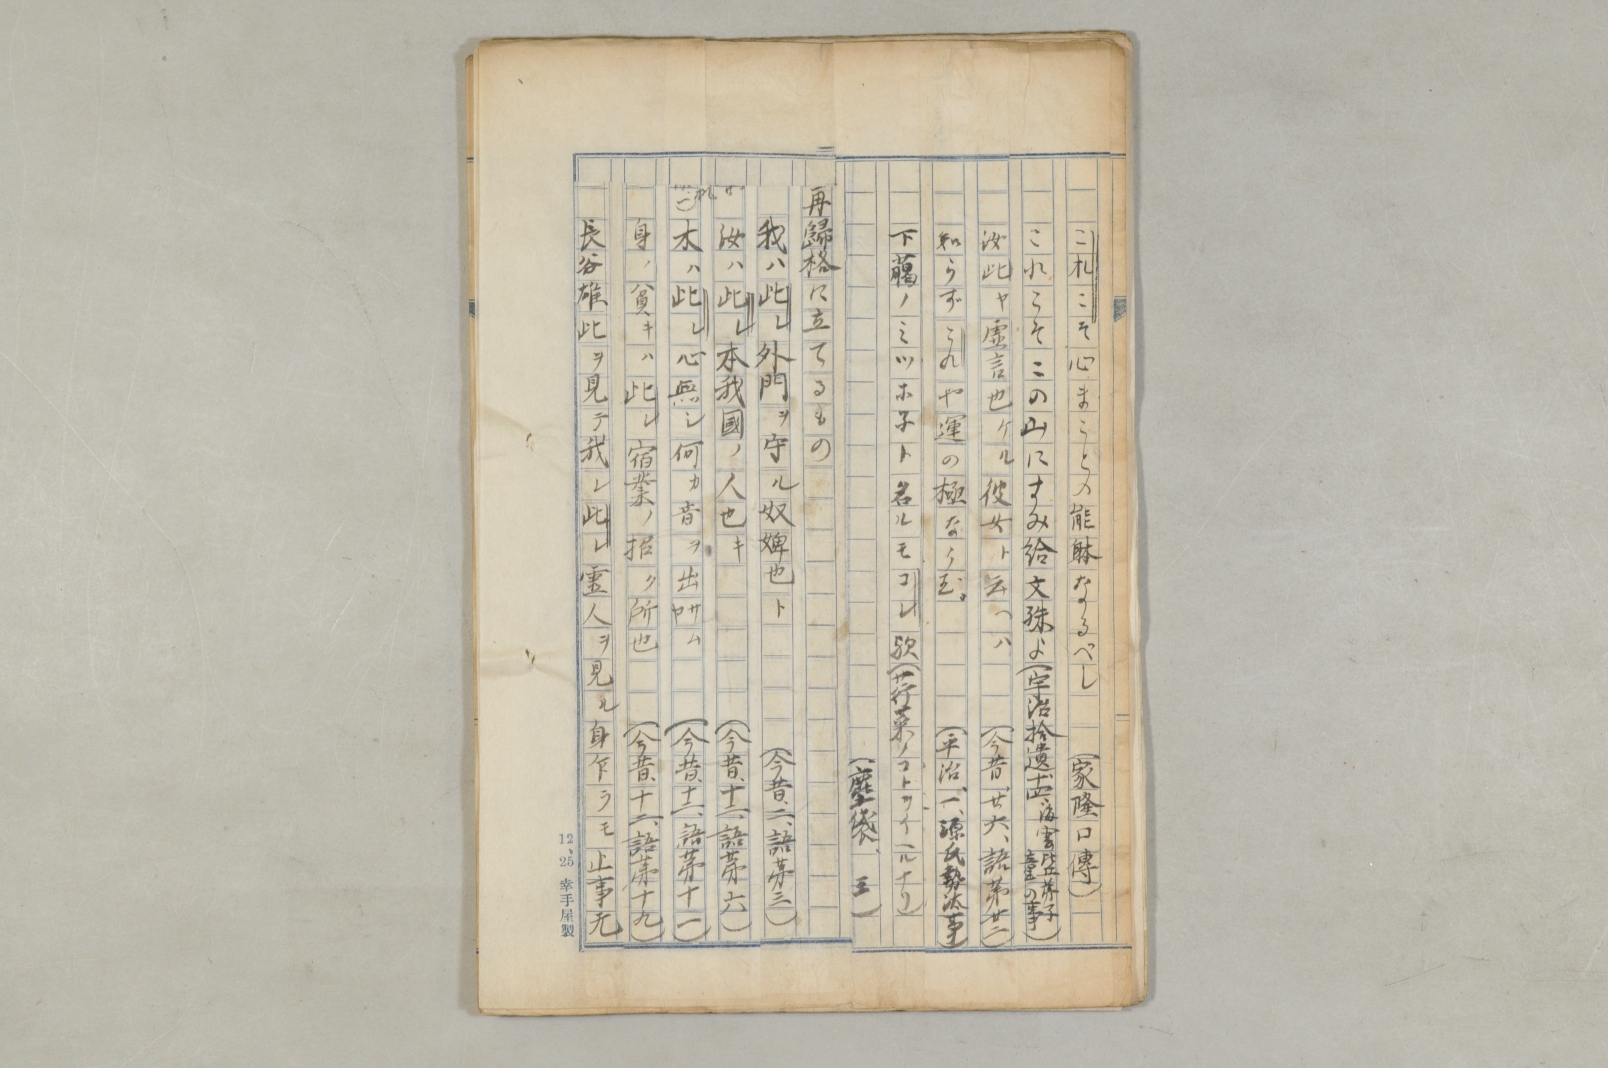 こ札こそ心まことの能躰なるべし (家隆口傳)
これこそこの山にすみ給文殊よ(宇治拾遺十四、海雲比丘弟子童の事)
汝此ヤ虚言也ケル彼女ト云ヘハ (今昔、廿六、語第廿二)
知らずこれや運の極なりけむ。 (平治、一、源氏勢汰事)
下﨟ノミツホ子ト名ルモコレ歟(荇菜ノコトヲイヘルナリ)
(塵袋、三)
再歸格に立てるもの
我ハ此レ外門ヲ守ル奴婢也ト (今昔、二、語第三)
汝ハ此レ本我國ノ人也キ (今昔、十一、語第六)
木ハ此レ心無シ何カ音ヲ出サム (今昔、十二、語第十一)
身ノ貧キハ此レ宿業ノ招ク所也 (今昔、十二、語第十九)
長谷雄此ヲ見テ我レ此レ霊人ヲ見ル身乍ラモ止事无
12、25 幸手屋製